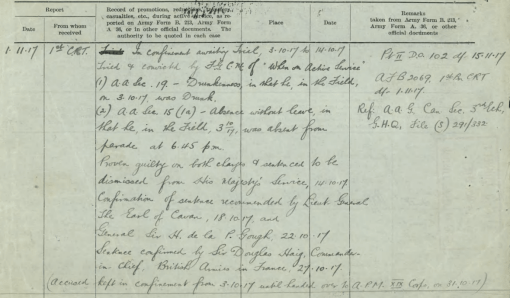 Report
Record of promotions, reductions, transfers, casualties, etc., during active service, as reported on Army Form B. 213, Army Form A 36, or in other official documents. The authority to be quoted in each case
Place
Date
Remarks
taken from Army Form B. 213, Army Form A. 36, or other official documents
Date
From whom received
1.11.17 1st C.R.T. In confinement awaiting trial, 3.10.17 to 14.10.17
Tried & convicted by F.G.C.M. of "When on Active Service"
(1) A.A. Sec. 19 - Drunkenness, in that he, in the Field,
on 3.10.17 was Drunk.
(2) A.A. Sec 15 (1a) - Absence without leave, in
that he, in the Field, 3/10/17, was absent from
parade at 6.45 pm.
Proven guilty on both charges & sentenced to be
dismissed from His Majesty's Service, 14.10.17
Confirmation of sentence recommended by Lieut General
The Earl of Cavan, 18.10.17, and
General Sir H. de la P. Gough, 22.10.17
Sentence confirmed by Sir Douglas Haig, Commander-
in-Chief, British Armies in France, 27.10.17
(Accused kept in confinement from 3.10.17 until handed over to A.P.M. XIX Corps. on 31.10.17)
Pt II D.O. 102 df 15.11.17
A.F.B 2069, 1st Bn CRT
df 1.11.17.
Ref. A.A.G. Can Sec. 3rd Ech,
G.H.Q, File (3) 291/332